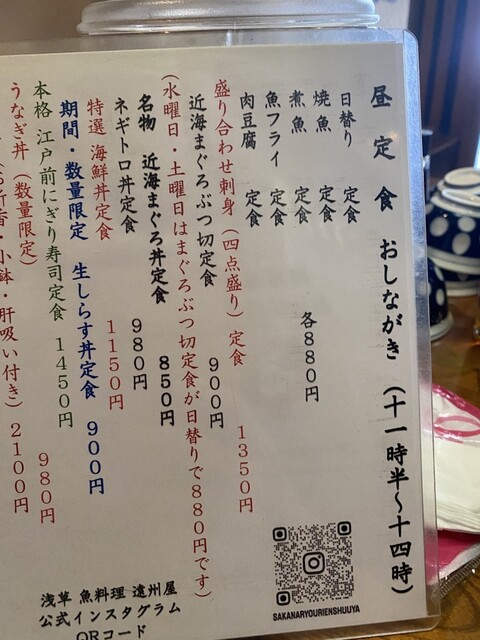 昼定食 おしながき (十一時半〜十四時)
日替り 定食
焼魚 定食
煮魚 定食 各880円
魚フライ 定食
肉豆腐 定食
盛り合わせ刺身(四点盛り)定食 1350円
近海まぐろぶつ切定食 900円
(水曜日・土曜日はまぐろぶつ切定食が日替りで880円です)
名物 近海まぐろ丼定食 850円
ネギトロ丼定食 980円
特選 海鮮丼定食 1150円
期間・数量限定 生しらす丼定食 900円
本格 江戸前にぎり寿司定食 1450円
うなぎ丼(数量限定) 980円
新香・小鉢・肝吸い付き) 2100円
SAKANARYOURIENSHUUYA
浅草 魚料理 遠州屋
公式インスタグラム
QRコード